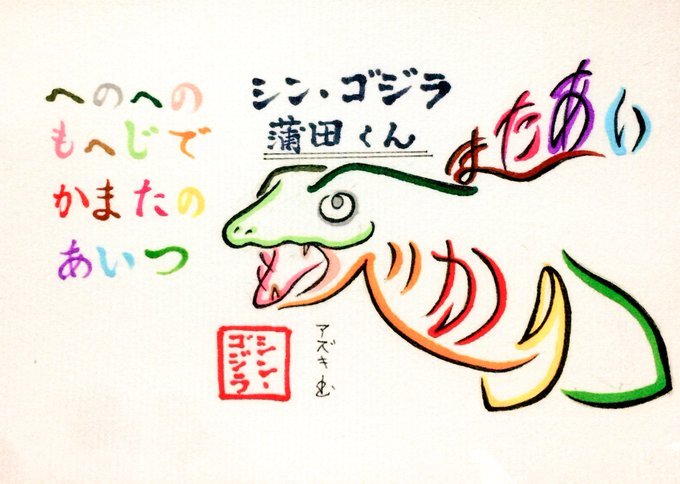 へのへの
もへじで
かまたの
あいつ
シン・ゴジラ
蒲田くん
またあい
か
シン・
ゴジラ
アズキ